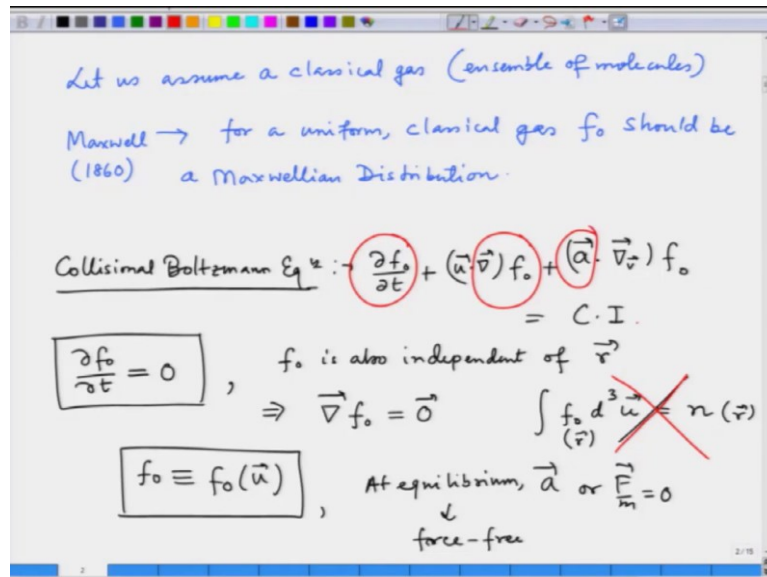 Let us assume a classical gas (ensemble of molecules)
Maxwell → for a uniform, classical gas f₀ should be
(1860) a Maxwellian Distribution.
Collisional Boltzmann Eqⁿ :- ∂f₀/∂t + (u⃗·∇⃗) f₀ + (a⃗·∇⃗ᵥ) f₀
= C.I.
∂f₀/∂t = 0 , f₀ is also independent of r⃗
⇒ ∇⃗ f₀ = 0⃗ ∫ f₀(r⃗) d³u⃗ = n(r⃗)
f₀ ≡ f₀(u⃗) , At equilibrium, a⃗ or F⃗/m = 0
↓
force-free
2/15
2